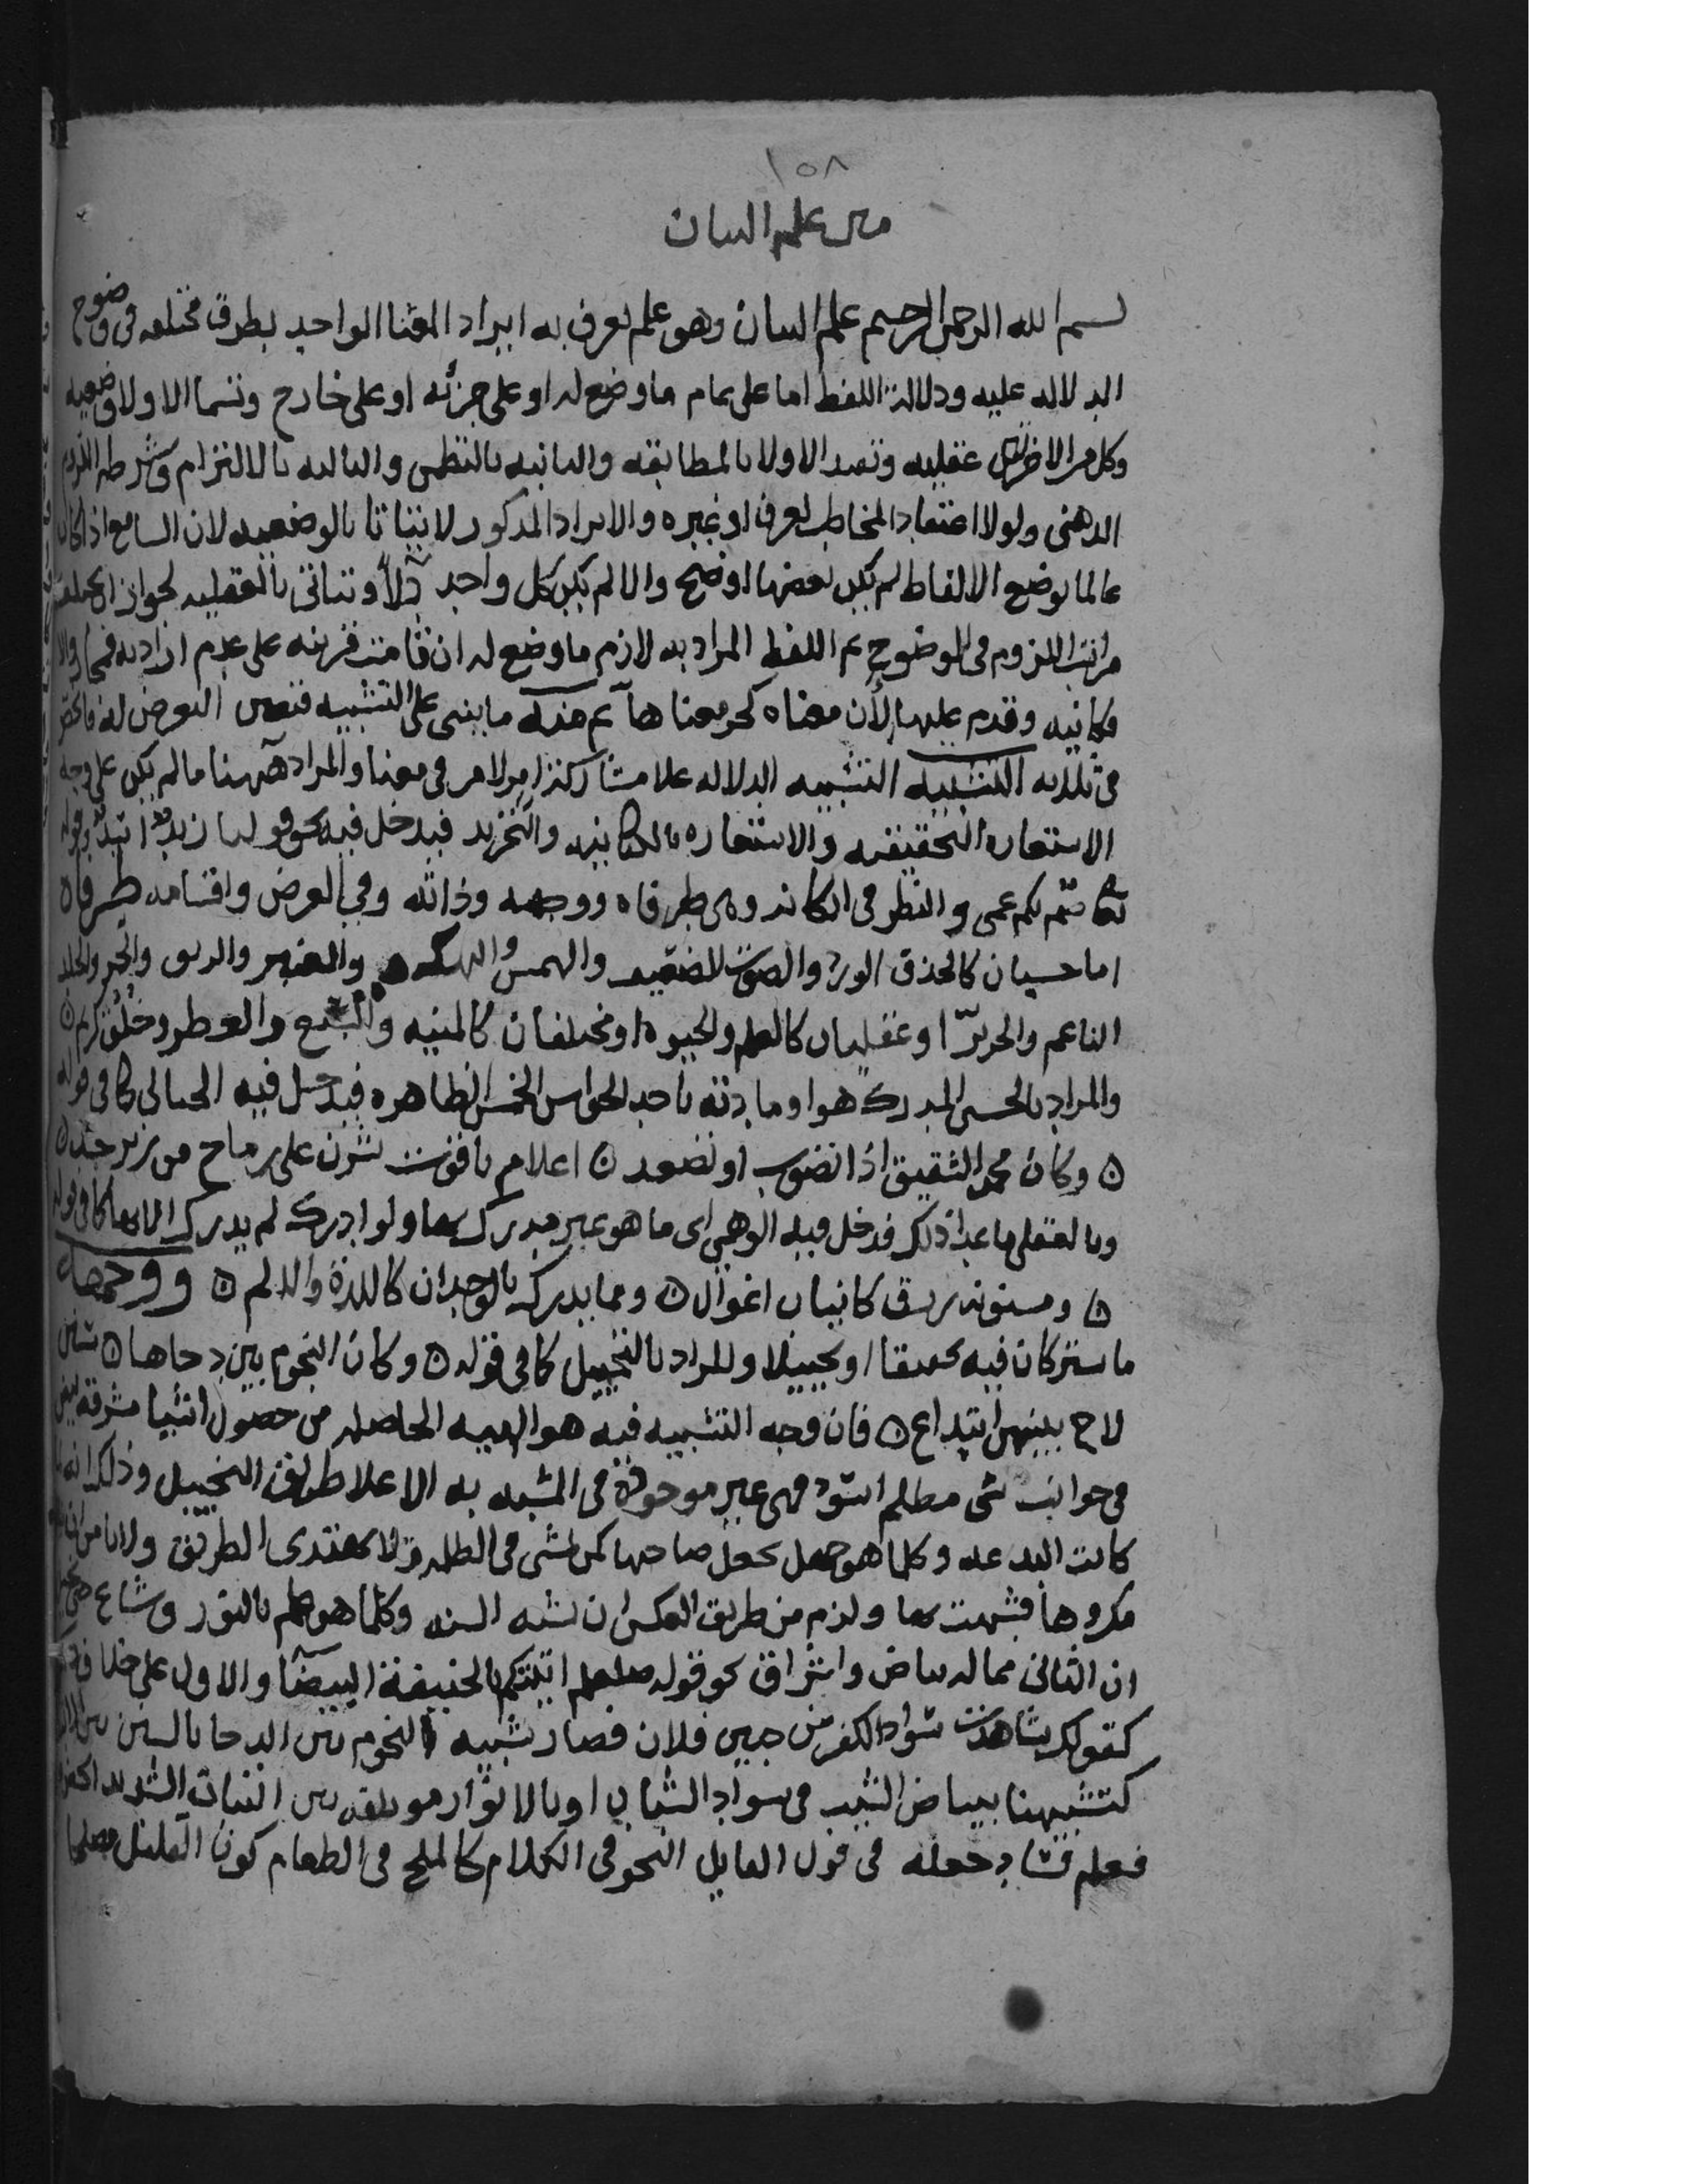 ١٥٨
من علم البيان
بسم الله الرحمن الرحيم علم البيان وهو علم يعرف به ايراد المعنا الواحد بطرق مختلفه في وضوح
الدلاله عليه ودلالة اللفظ اما على تمام ما وضع له او على جزئه او على خارج وتسما الاولا وضعيه
وكل من الاخرتين عقليه وتقيد الاولا بالمطابقه والثانيه بالتظمن والثالثه بالالتزام وشرطه اللزوم
الذهني ولو لاعتقاد المخاطب لعرف او غيره والايراد المذكور لا يتاتا بالوضعيه لان السامع اذا كان
عالما بوضع الالفاظ لم يكن بعضها اوضح والا لم يكن كل واحد دالا وتتاتى بالعقليه لجواز ان يختلف
مراتب اللزوم في الوضوح ثم اللفظ المراد به لازم ما وضع له ان قامت قرينه على عدم ارادته فمجاز والا
فكانيه وقدم عليها لأن معناه كجزء معناها ثم منه ما يبنى على التشبيه فتعين التعرض له فانحصر
في ثلاثه التشبيه التشبيه الدلاله علا مشاركة امر لامر في معنا والمراد هٓهنا ما لم يكن على وجه
الاستعاره التحقيقيه والاستعاره بالكنايه والتجريد فيدخل فيه نحو قولنا زيد اسد وقوله
تعا صم بكم عمي والنظر في اركانه وهي طرفاه ووجهه وذاته وفي الغرض واقسامه طرفاه
اما حسيان كالخد والورد والصوت الضعيف والهمس والنكهه والعنبر والريق والخمر والجلد
الناعم والحرير او عقليان كالعلم والحيوه او مختلفان كالمنيه والسبع والعطر وخلق كريم ۞
والمراد بالحسي المدرك هو او مادته باحد الحواس الخمس الظاهره فيدخل فيه الخيالي كما في قوله
۞ وكان محمر الشقيق اذا تصوب او تصعد ۞ اعلام ياقوت نشرن على رماح من زبرجد ۞
وبالعقلي ما عدا ذلك فدخل فيه الوهمي اي ما هو غير مدرك بها ولو ادرك لم يدرك الا بها كما في قوله
۞ ومسنونه زرق كانياب اغوال ۞ وما يدرك بالوجدان كاللذة والالم ۞ ووجهه
ما يشتركان فيه تحقيقا او تخييلا والمراد بالتخييل كما في قوله ۞ وكان النجوم بين دجاها ۞ سنن
لاح بينهن ابتداع ۞ فان وجه التشبيه فيه هو الهييه الحاصله من حصول اشيا مشرقه بيض
في جوانب شي مظلم اسود فهي غير موجودة في المشبه به الا علا طريق التخييل وذلك انه لما
كانت البدعه وكلما هو جهل تجعل صاحبها كمن يمشي في الظلمه فلا يهتدي الطريق ولا يامن ان ينال
مكروها فشبهت بها ولزم من طريق العكس ان تشبه السنه وكلما هو علم بالنور وشاع حتى تخيل
ان الثاني مما له بياض واشراق نحو قوله صلعم اتيتكم بالحنيفة البيضآ والاول على خلاف ذلك
كقولك شاهدت سواد الكفر من جبين فلان فصار تشبيه النجوم بين الدجا بالسنن بين الابتداع
كتشبيهنا ببياض الشيب في سواد الشباب او بالانوار موتلقه بين النبات الشديد الخضره
فعلم فساد جعله في قول القايل النحو في الكلام كالملح في الطعام كون القليل مصلحا